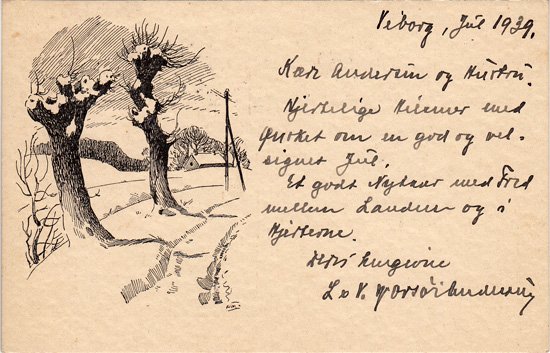 Viborg, Jul 1939.
Kære Andersen og Hustru.
Hjertelige Hilsener med
Ønsket om en god og vel-
signet Jul.
Et godt Nytaar med Fred
mellem Landene og i
Hjerterne.
Deres hengivne
L. & V.